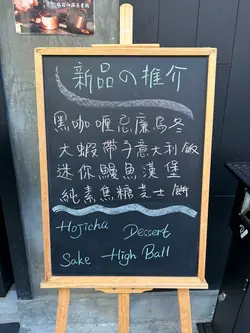 新品の推介
黑咖喱忌廉烏冬
大蝦帶子意大利飯
迷你鰻魚漢堡
純素焦糖芝士餅
Hojicha Dessert
Sake High Ball